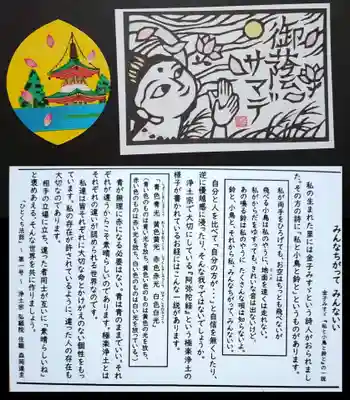 御蔭サマデ
みんなちがって みんないい
金子みすゞ「私と小鳥と鈴と」の一説
私の生まれた里には金子みすゞという詩人がおられまし
た。その方の詩に「私と小鳥と鈴と」というものがあります。
私が両手をひろげても、お空はちっとも飛べないが
飛べる小鳥は私のやうに、地面を速くは走れない。
私がからだをゆすっても、きれいな音は出ないけど、
あの鳴る鈴は私のやうに たくさんな唄は知らないよ。
鈴と、小鳥と、それから私、みんなちがって、みんないい。
自分と人を比べて「自分の方が…」と自信を無くしたり、
逆に優越感に浸ったり、そんな我々ではないでしょうか。
浄土宗で大切にしている『阿弥陀経』という極楽浄土の
様子が書かれているお経にはこんな一説があります。
青色青光 黄色黄光 赤色赤光 白色白光
「青い色のものは青い光を放ち、黄色い色のものは黄色の光を放ち、
赤い色のものは赤い光を放ち、白い色のものは白い光を放っている。」
青が無理に赤になる必要はない。青は青のままでいい。それ
ぞれが違うからこそ素晴らしいのであります。極楽浄土とは
それぞれの違いが認められる世界なのです。
私達は皆それぞれに大切な命とかけがえのない個性をもっ
ています。私の存在が許されているように、違った人の存在も
大切なのであります。
相手の立場に立ち、違った者同士がお互いに「素晴らしいね」
と褒めあえる、そんな世界を共に作りましょう。
「ひとくち法話」 第一号 浄土宗 弘願院 住職 森岡達圭